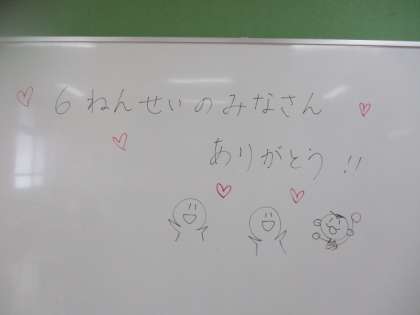 6ねんせいのみなさん
ありがとう!!